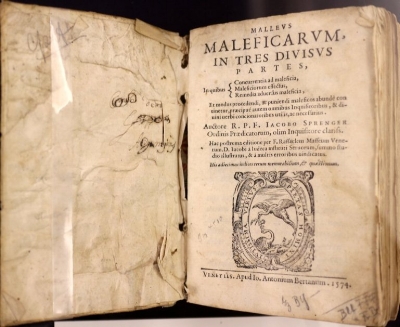 MALLEVS
MALEFICARVM,
IN TRES DIVISVS
PARTES,
In quibus
Concurrentia ad maleficia,
Maleficiorum effectus,
Remedia aduersus maleficia,
Et modus procedendi, & puniendi maleficos abundè con
tinetur, præcipuè autem omnibus Inquisitoribus, & di
uini verbi concionatoribus vtilis, ac necessarius.
Auctore R. P. F. IACOBO SPRENGER
Ordinis Prædicatorum, olim Inquisitore clariss.
Hac postrema editione per F. Raffaelem Maffeum Vene-
tum, D. Iacobi à Iudeca instituti Seruorum, summo stu-
dio illustratus, & à multis erroribus vindicatus.
His adiecimus indices rerum memorabilium, & quæstionum.
VENETIIS, Apud Io. Antonium Bertanum. 1574.